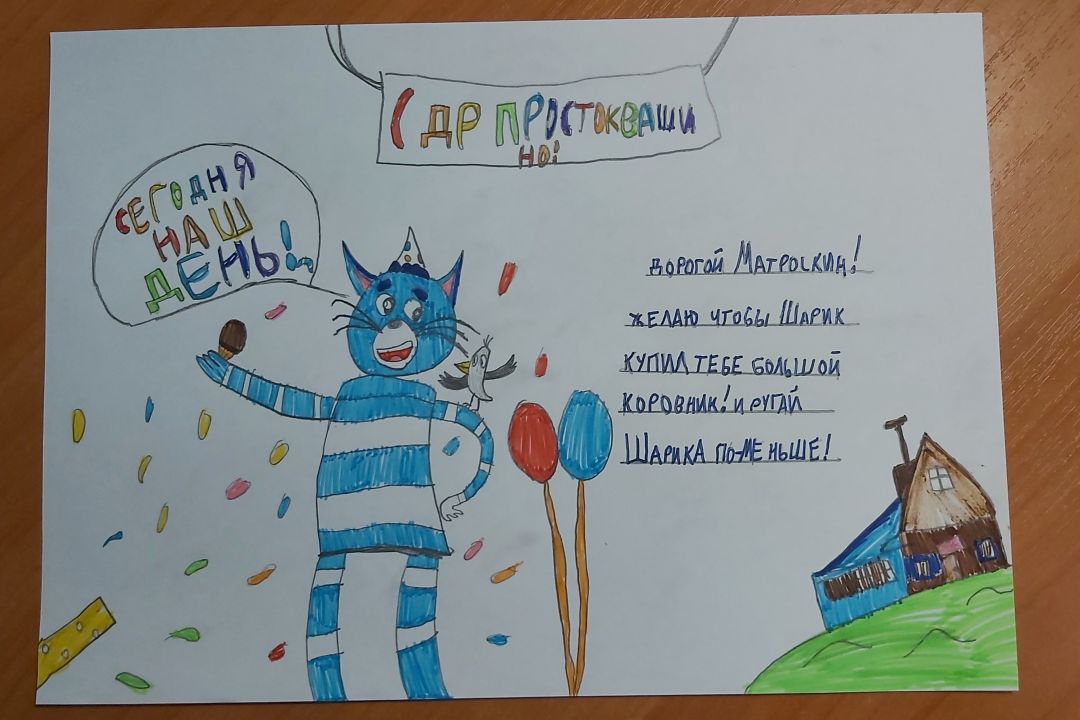 С ДР ПРОСТОКВАШИ
НО!
СЕГОДНЯ
НАШ
ДЕНЬ!
ДОРОГОЙ МАТРОСКИН!
ЖЕЛАЮ ЧТОБЫ ШАРИК
КУПИЛ ТЕБЕ БОЛЬШОЙ
КОРОВНИК! И РУГАЙ
ШАРИКА ПО-МЕНЬШЕ!